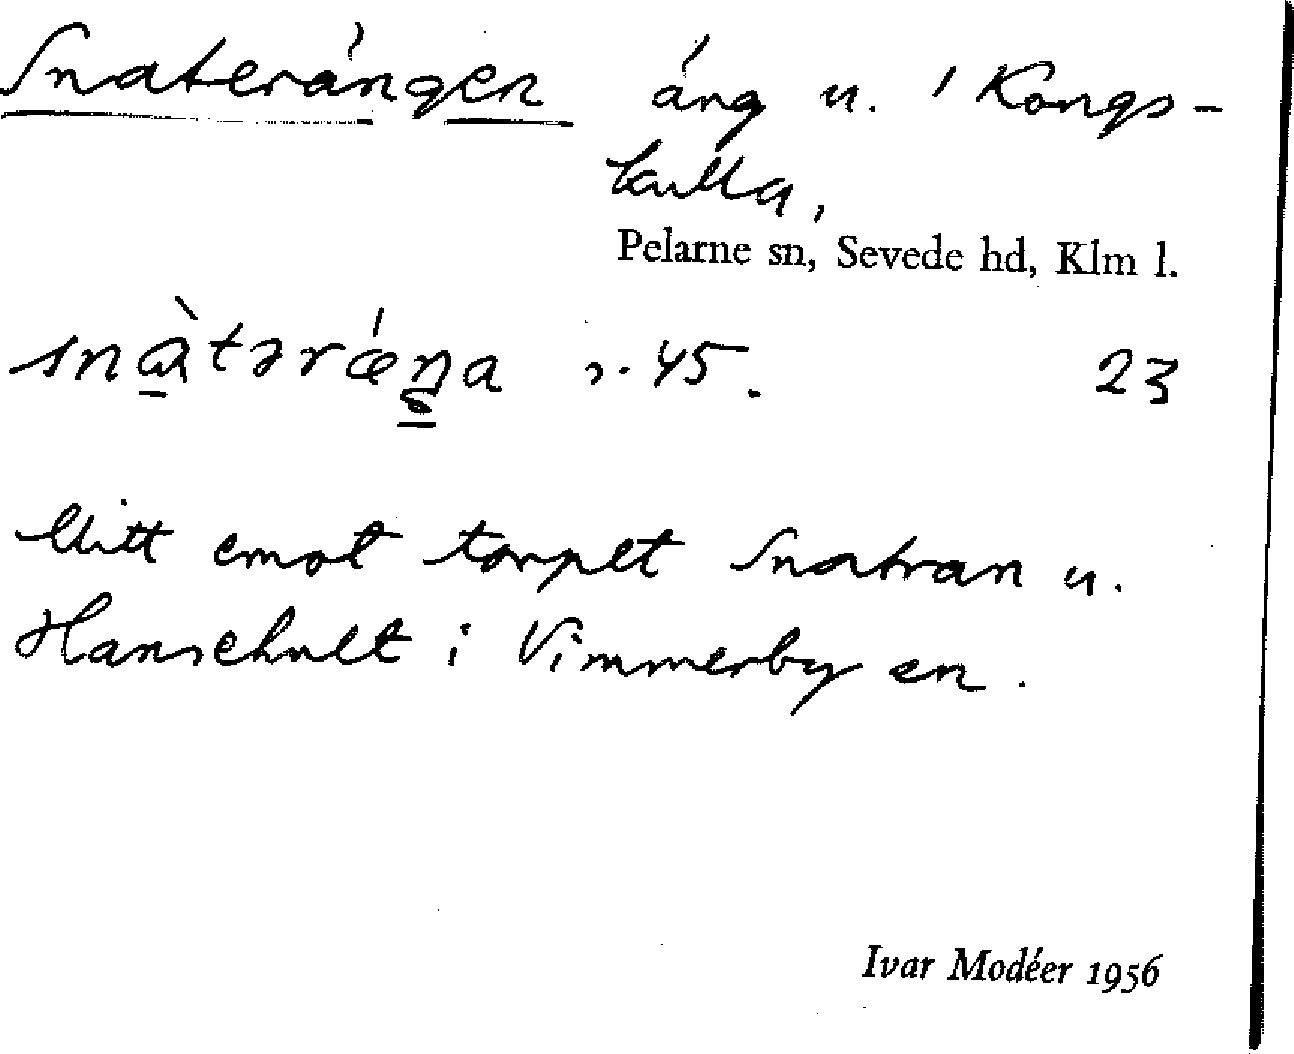 Snaterängen äng u. 1 Kongs-
kulla,
Pelarne sn, Sevede hd, Klm l.
snàtəráŋa r. 45. 23
Mitt emot torpet Snatran u.
Hanschult i Vimmerby sn.
Ivar Modéer 1956